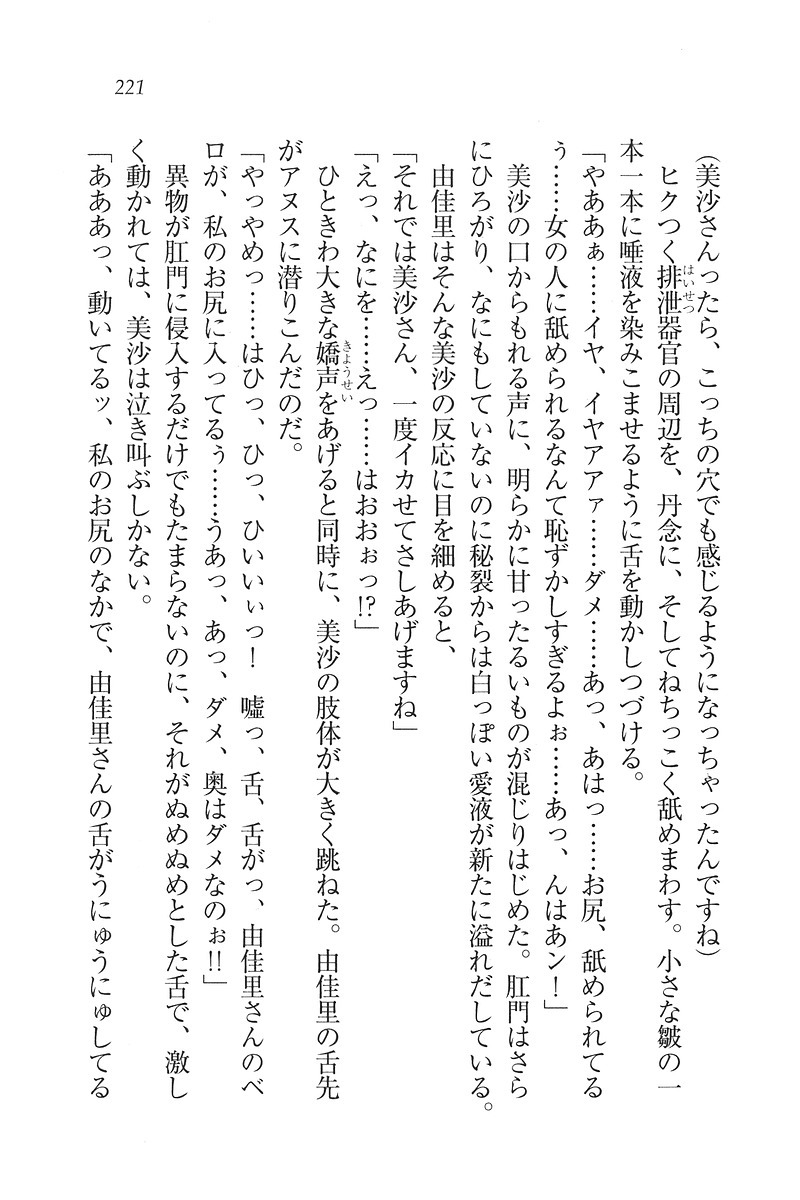 221
(美沙さんったら、こっちの穴でも感じるようになっちゃったんですね)
ヒクつく排泄器官の周辺を、丹念に、そしてねちっこく舐めまわす。小さな皺の一
はいせつ
本一本に唾液を染みこませるように舌を動かしつづける。
「やああぁ……イヤ、イヤアアァ……ダメ……あっ、あはっ……お尻、舐められてる
ぅ……女の人に舐められるなんて恥ずかしすぎるよぉ……あっ、んはあン！」
美沙の口からもれる声に、明らかに甘ったるいものが混じりはじめた。肛門はさら
にひろがり、なにもしていないのに秘裂からは白っぽい愛液が新たに溢れだしている。
由佳里はそんな美沙の反応に目を細めると、
「それでは美沙さん、一度イカせてさしあげますね」
「えっ、なにを……えっ……はおおぉっ!?」
ひときわ大きな嬌声をあげると同時に、美沙の肢体が大きく跳ねた。由佳里の舌先
きようせい
がアヌスに潜りこんだのだ。
「やっやめっ……はひっ、ひっ、ひいいぃっ！　嘘っ、舌、舌がっ、由佳里さんのベ
ロが、私のお尻に入ってるぅ……うあっ、あっ、ダメ、奥はダメなのぉ!!」
異物が肛門に侵入するだけでもたまらないのに、それがぬめぬめとした舌で、激し
く動かれては、美沙は泣き叫ぶしかない。
「あああっ、動いてるッ、私のお尻のなかで、由佳里さんの舌がうにゅうにゅしてる